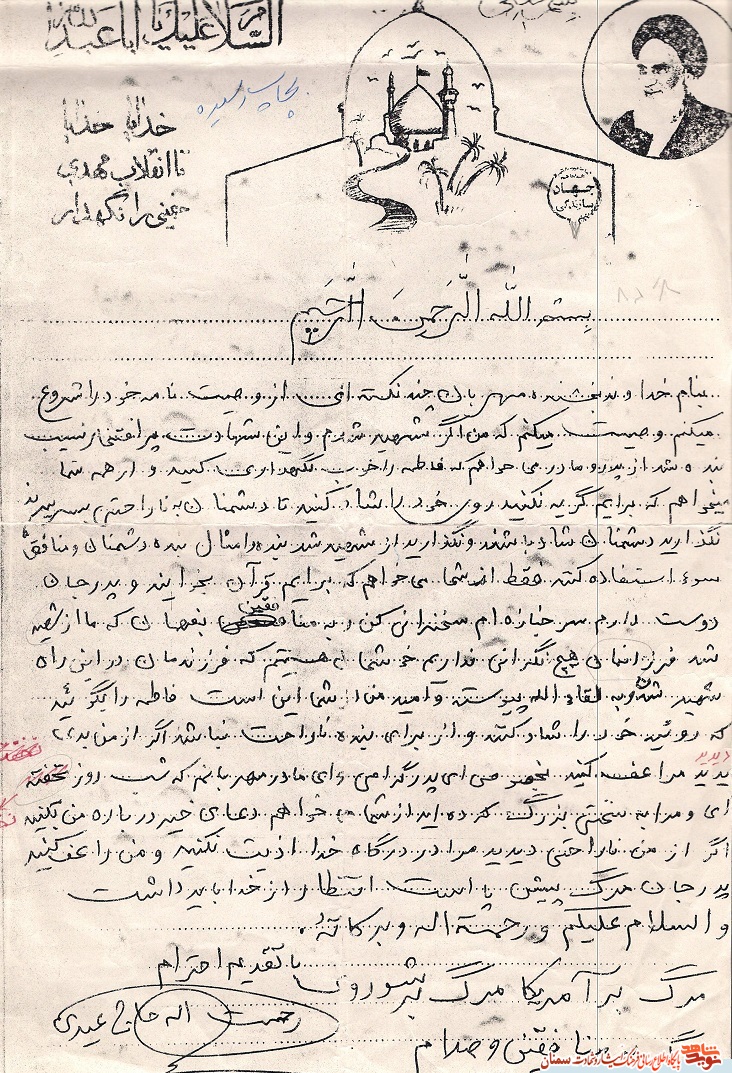 السلام علیک یا اباعبدالله
بچاپ رسیده
خدایا خدایا
تا انقلاب مهدی
خمینی را نگهدار
جهاد
سازندگی
بسم الله الرحمن الرحیم
بنام خداوند بخشنده مهربان چند نکته ائی از وصیت نامه خود را شروع
میکنم وصیت میکنم که من اگر شهید شدم و این شهادت پر افتخار نسیب
بنده شد از پدر و مادر می خواهم که فاطمه را خوب نگهداری کنید و از همه شما
میخواهم که برایم گریه نکنید روی خود را شاد کنید تا دشمنان به ناراحتی بسر ببرند
نگذارید دشمنان شاد باشند و نگذارید از شهید شدن بنده و امثال بنده دشمنان و منافق
سوء استفاده کنند فقط از شما می خواهم که برایم قرآن بخوانید و پدر جان
دوست دارم سر جنازه ام سخنرانی کن و به منافقین بفهمان که ما از شهید
شدن فرزندمان هیچ نگرانی نداریم خوشحال هستیم که فرزندمان در این راه
شهید شد و به لقاء الله پیوسته و امید من از شما این است فاطمه را بگوئید
که روئید خود را شاد کند و از برای بنده ناراحت نباشد اگر از من بدی
دیدید
دیدید مرا عفو کنید ای پدر گرامی و ای مادر مهربانم که شب روز نخفته
ای و مرا به سختی بزرگ کرده اید از شما می خواهم دعای خیر درباره من بکنید
اگر از من ناراحتی دیدید مرا در درگاه خدا اذیت نکنید و من را عف کنید
پدر جان مرگ پیش پا است انتظار از خدا باید داشت
والسلام علیکم و رحمة اله و برکاته
با تقدیم احترام
مرگ بر آمریکا مرگ بر شوروی
رحمت اله حاج عبدی
مرگ بر منافقین و صدام
نوید شاهد پایگاه اطلاع رسانی فرهنگ ایثار و شهادت سمنان